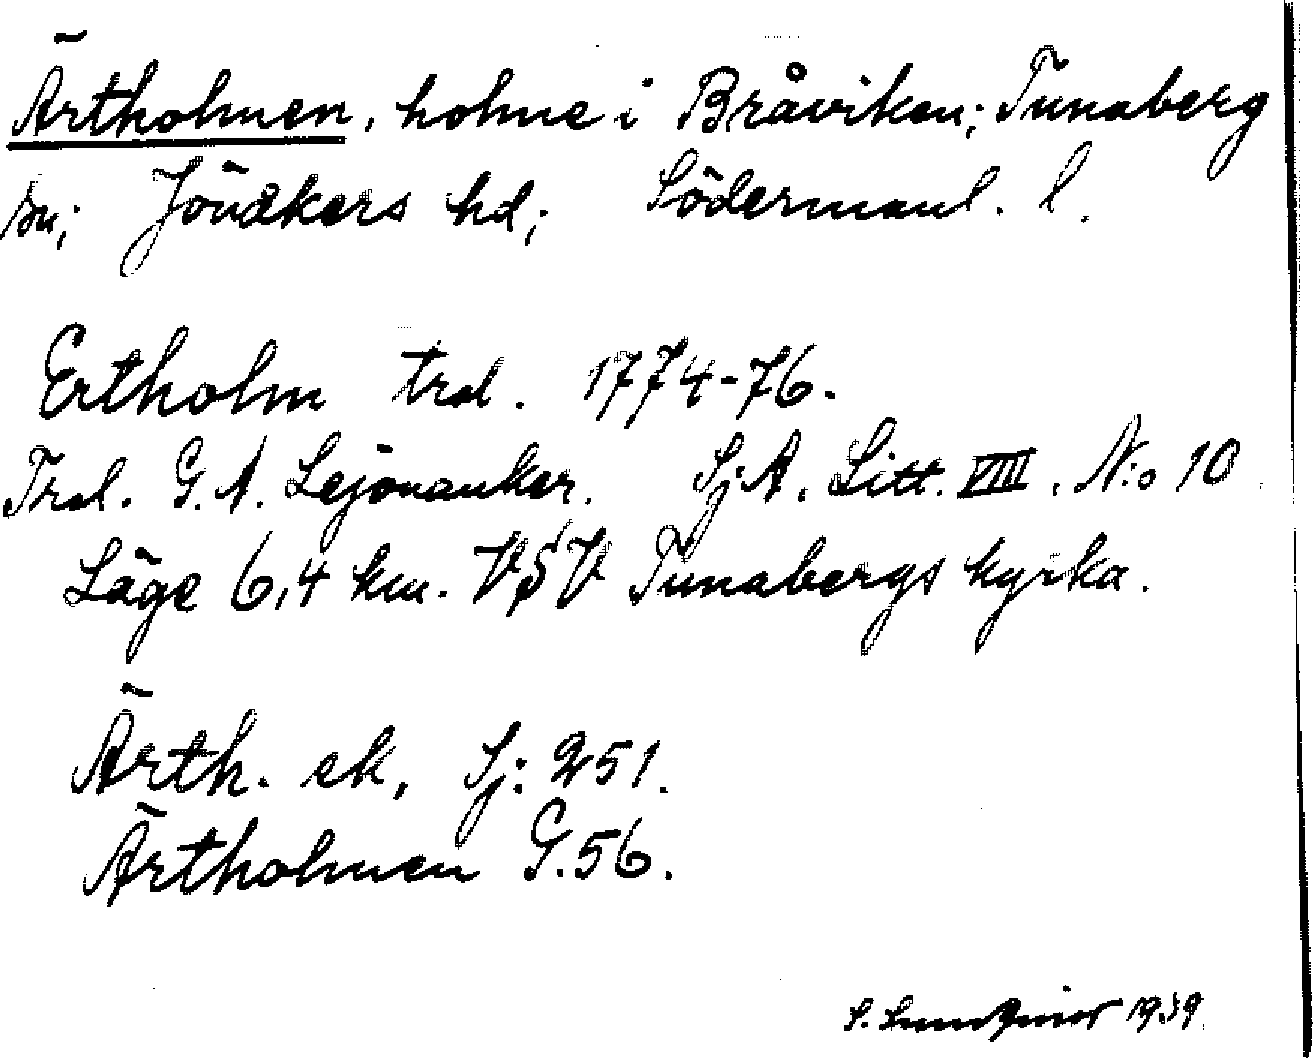 Ärtholmen, holme i Bråviken; Tunaberg
sn; Jönåkers hd; Södermanl. l.
Ertholm trol. 1774-76.
Trol. G. A. Lejonanker. Sj. A. Litt. VIII. N:o 10
Läge 6,4 km. VSV Tunabergs kyrka.
Ärth. ek, Sj: 251.
Ärtholmen G. 56.
S. 1939